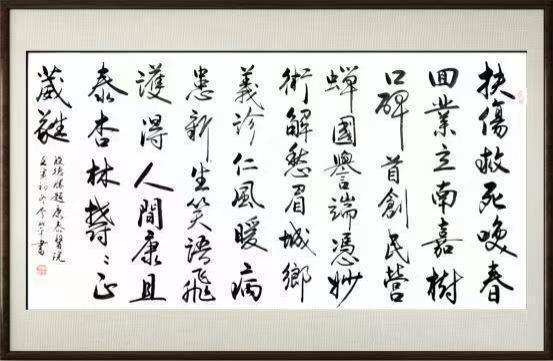 扶傷救死喚春
回業立南嘉樹
口碑首創民營
蟬國譽端憑妙
術解愁眉城鄉
義診仁風暖病
患新生笑語飛
護得人間康且
泰杏林鬱〻正
葳蕤
康泰醫院
書